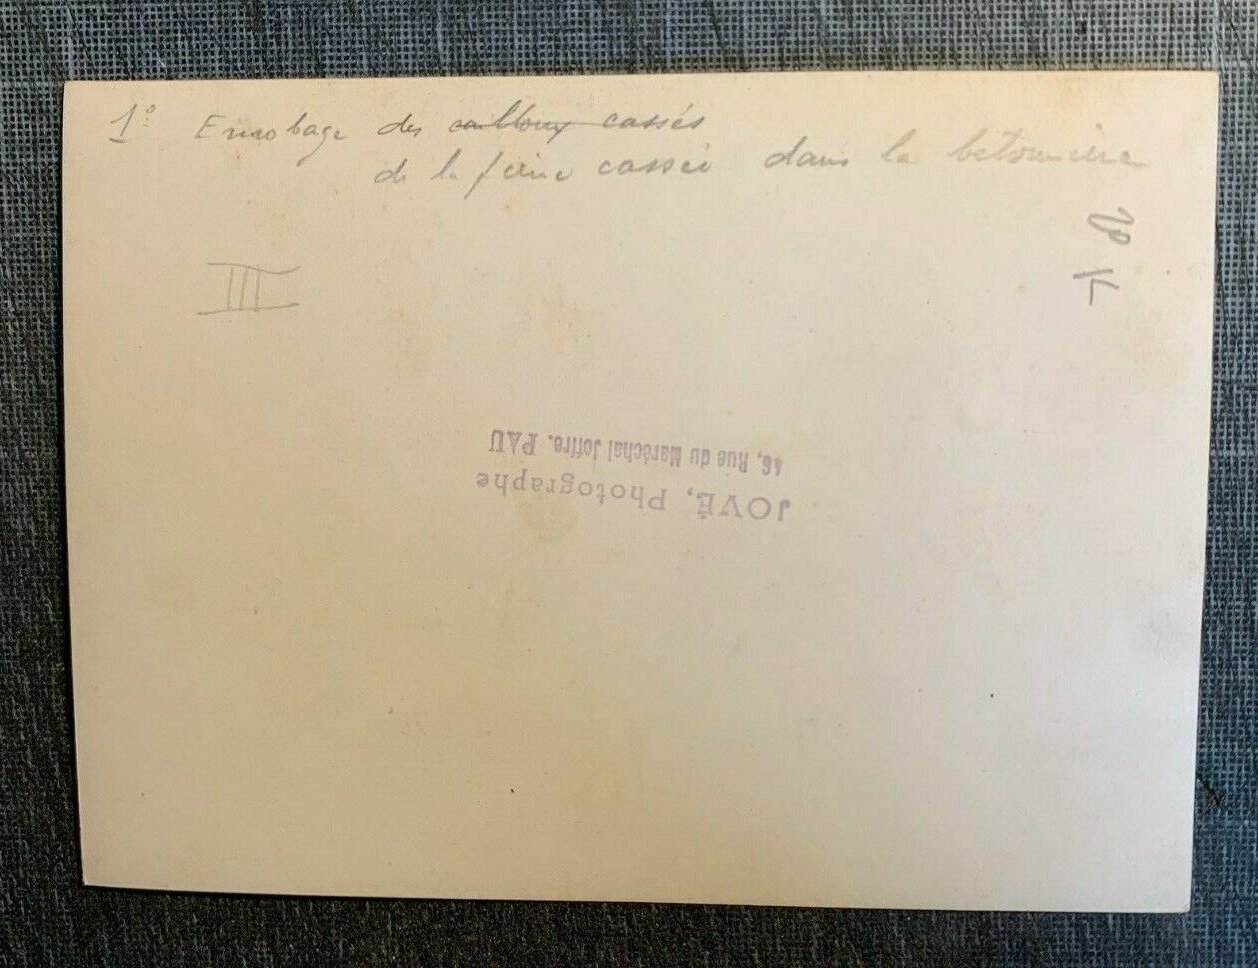 1° Enrobage des cailloux cassés
de la pierre cassée dans la bétonnière
III
JOVÉ, Photographe
46, Rue du Maréchal Joffre. PAU